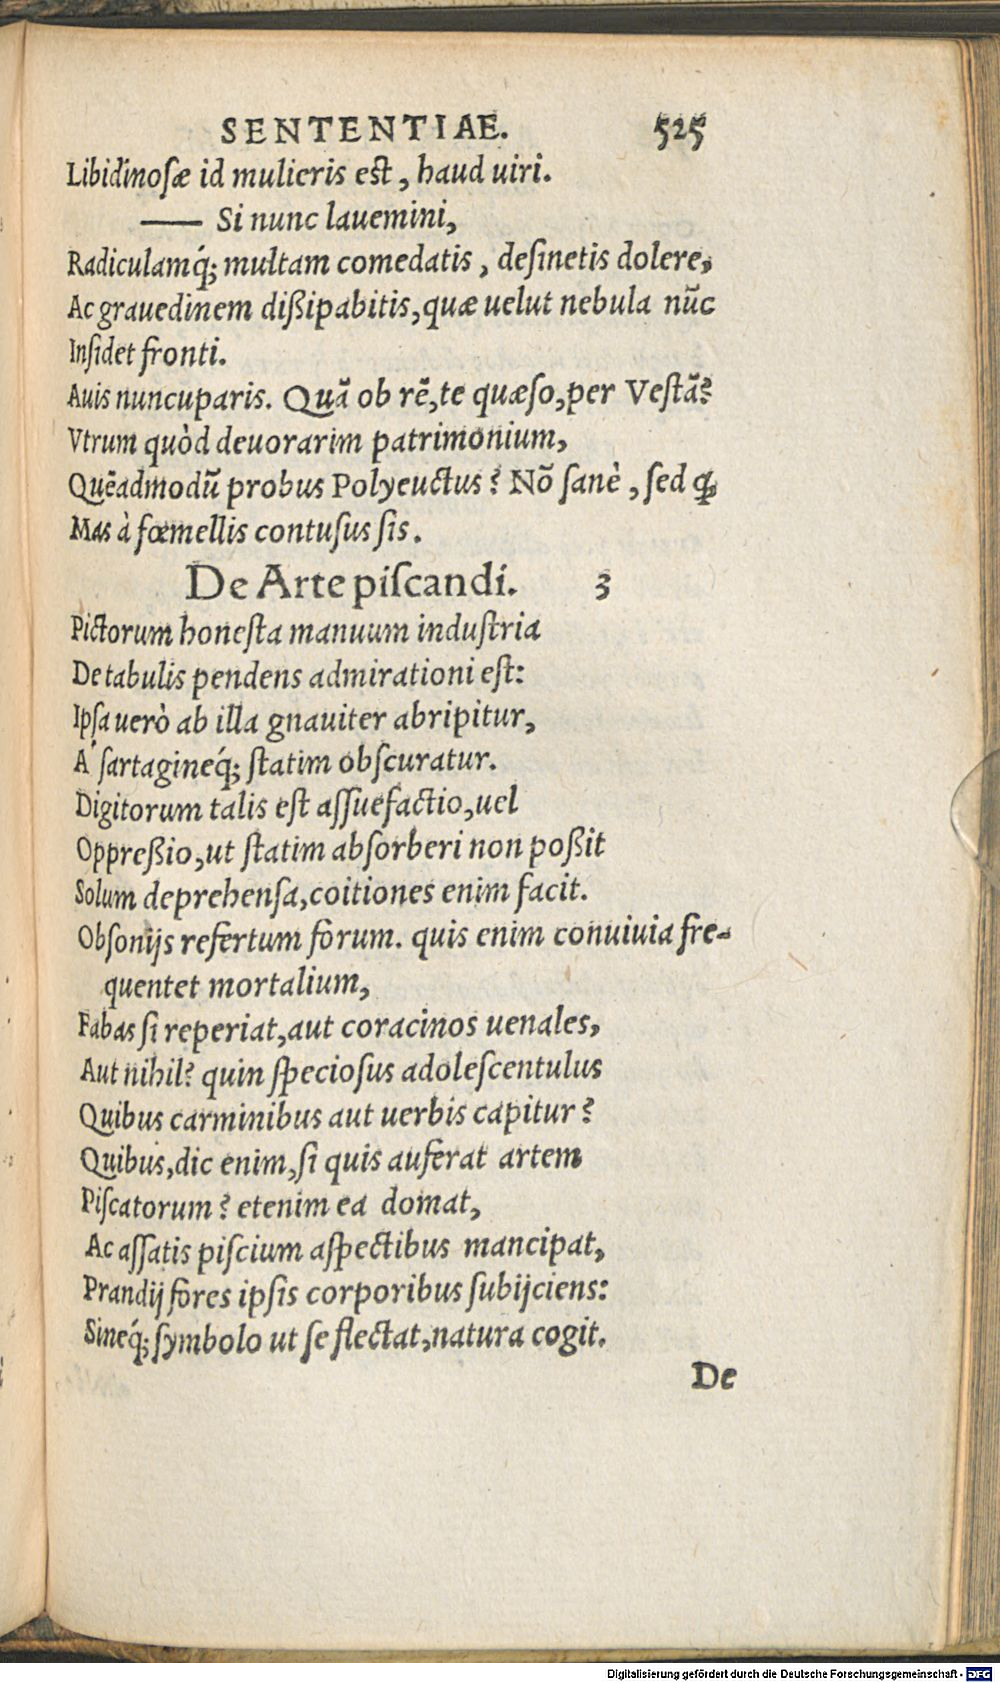 SENTENTIAE. 525
Libidinosæ id mulieris est, haud uiri.
—— Si nunc lauemini,
Radiculamq́; multam comedatis, desinetis dolere,
Ac grauedinem dißipabitis, quæ uelut nebula nūc
Insidet fronti.
Auis nuncuparis. Quā ob rē, te quæso, per Vestā?
Vtrum quòd deuorarim patrimonium,
Quēadmodū probus Polyeuctus? Nō sanè, sed ꝙ
Mas à fœmellis contusus sis.
De Arte piscandi. 3
Pictorum honesta manuum industria
De tabulis pendens admirationi est:
Ipsa uerò ab illa gnauiter abripitur,
A' sartagineq́; statim obscuratur.
Digitorum talis est assuefactio, uel
Oppreßio, ut statim absorberi non poßit
Solum deprehensa, coitiones enim facit.
Obsonijs refertum forum. quis enim conuiuia fre-
quentet mortalium,
Fabas si reperiat, aut coracinos uenales,
Aut nihil? quin speciosus adolescentulus
Quibus carminibus aut uerbis capitur?
Quibus, dic enim, si quis auferat artem
Piscatorum? etenim ea domat,
Ac assatis piscium aspectibus mancipat,
Prandij fores ipsis corporibus subijciens:
Sineq́; symbolo ut se flectat, natura cogit.
De
Digitalisierung gefördert durch die Deutsche Forschungsgemeinschaft - DFG